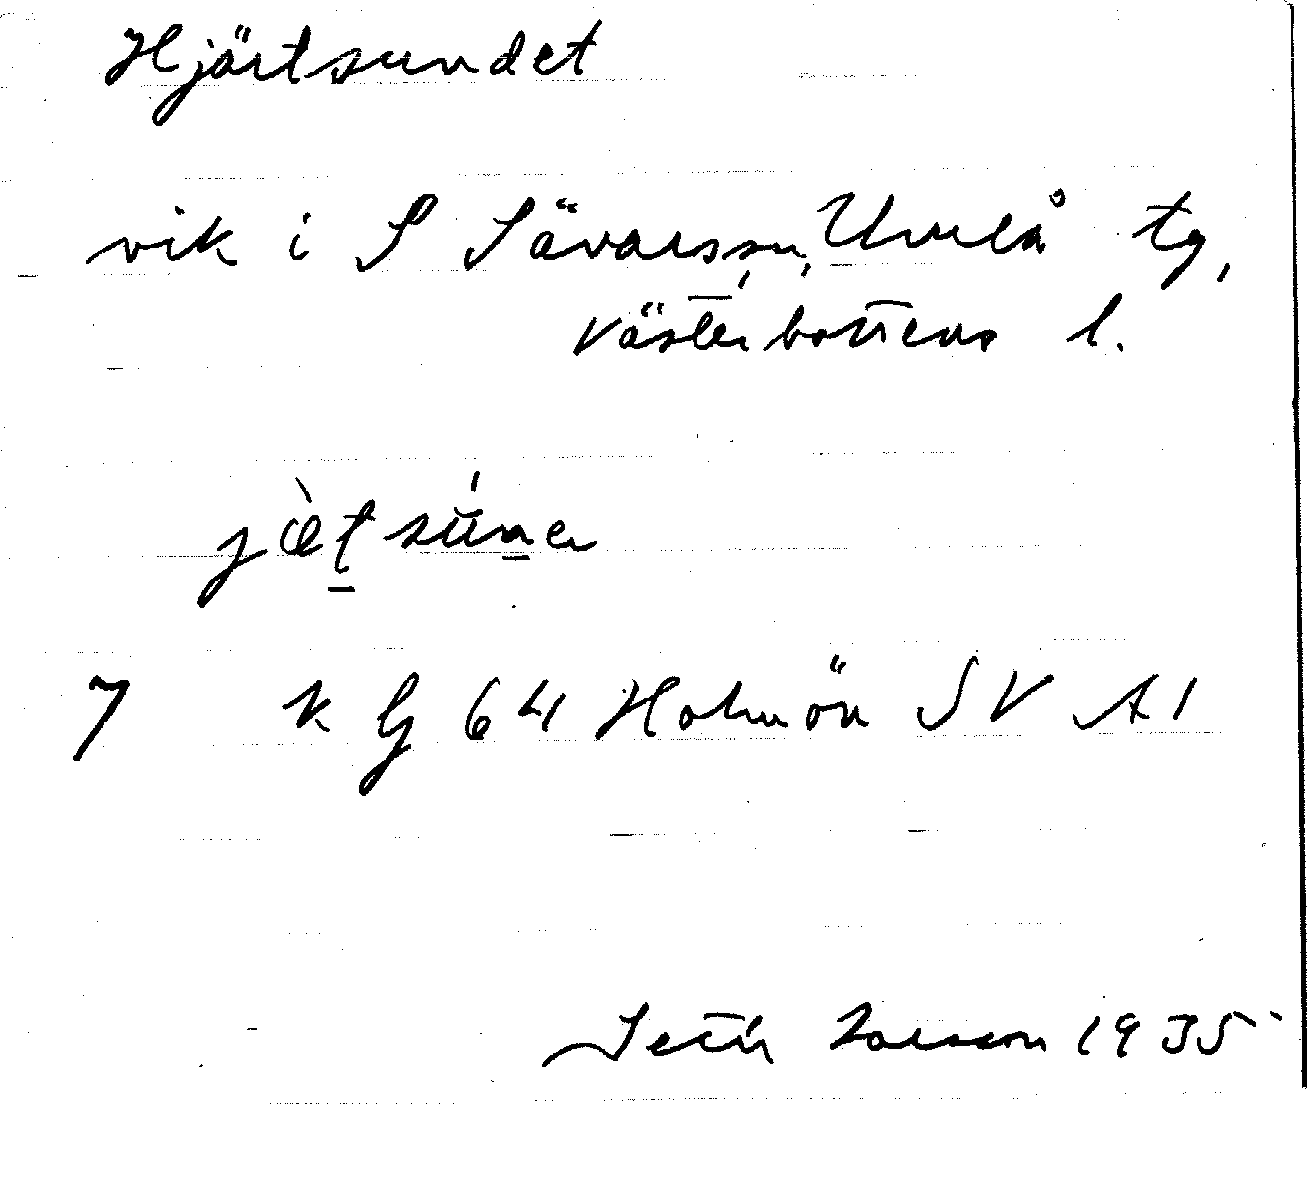 Hjärtsundet
vik i S Sävarssn, Umeå tg,
Västerbottens l.
jæ̀tsúne
7 k G 64 Holmön SV A1
Setür Larsson 1935